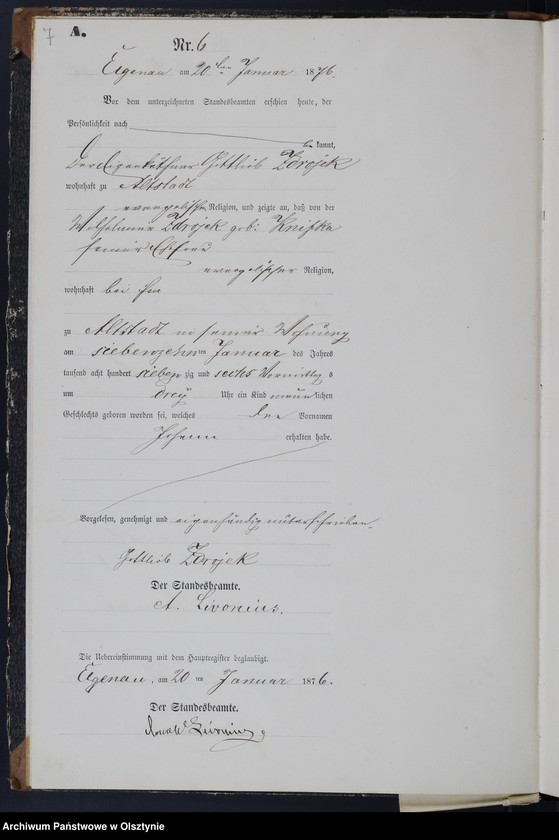 7
A.
Nr. 6
Eigenau am 20ten Januar 1876.
Vor dem unterzeichneten Standesbeamten erschien heute, der
Persönlichkeit nach
be kannt,
der Eigenkäthner Gottlieb Zdrojek
wohnhaft zu Altstadt
evangelischer Religion, und zeigte an, daß von der
Wilhelmine Zdrojek geb: Knifka
seiner Ehefrau
evangelischer Religion,
wohnhaft bei ihm
zu Altstadt in seiner Wohnung
am siebenzehnten Januar des Jahres
tausend acht hundert siebenzig und sechs Vormittags
um drei Uhr ein Kind männlichen
Geschlechts geboren worden sei, welches den Vornamen
Johann erhalten habe.
Vorgelesen, genehmigt und eigenhändig unterschrieben.
Gottlieb Zdrojek
Der Standesbeamte.
A. Livonius.
Die Uebereinstimmung mit dem Hauptregister beglaubigt.
Eigenau, am 20 ten Januar 1876.
Der Standesbeamte.
Livonius
Archiwum Państwowe w Olsztynie